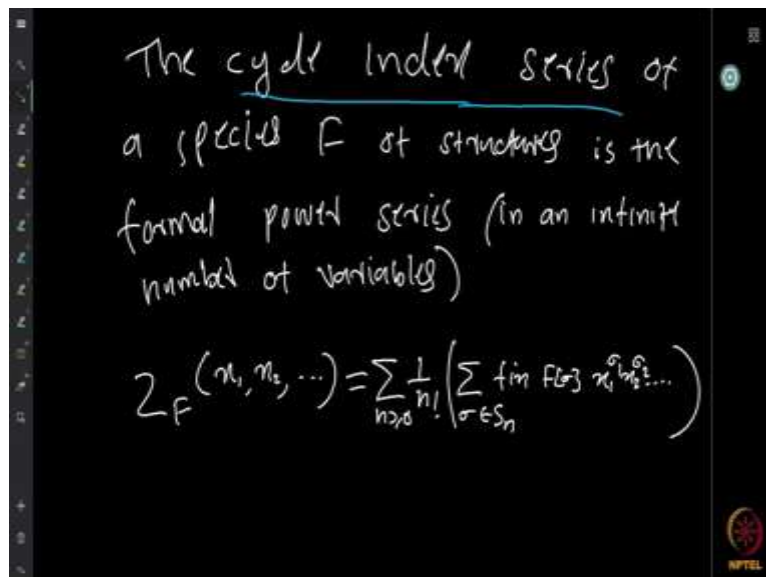 The cycle index series of
a species F of structures is the
formal power series (in an infinite
number of variables)
Z_F (x₁, x₂, ...) = ∑_{n≥0} 1/n! (∑_{σ∈S_n} fix F[σ] x₁^{σ₁} x₂^{σ₂} ...)
NPTEL